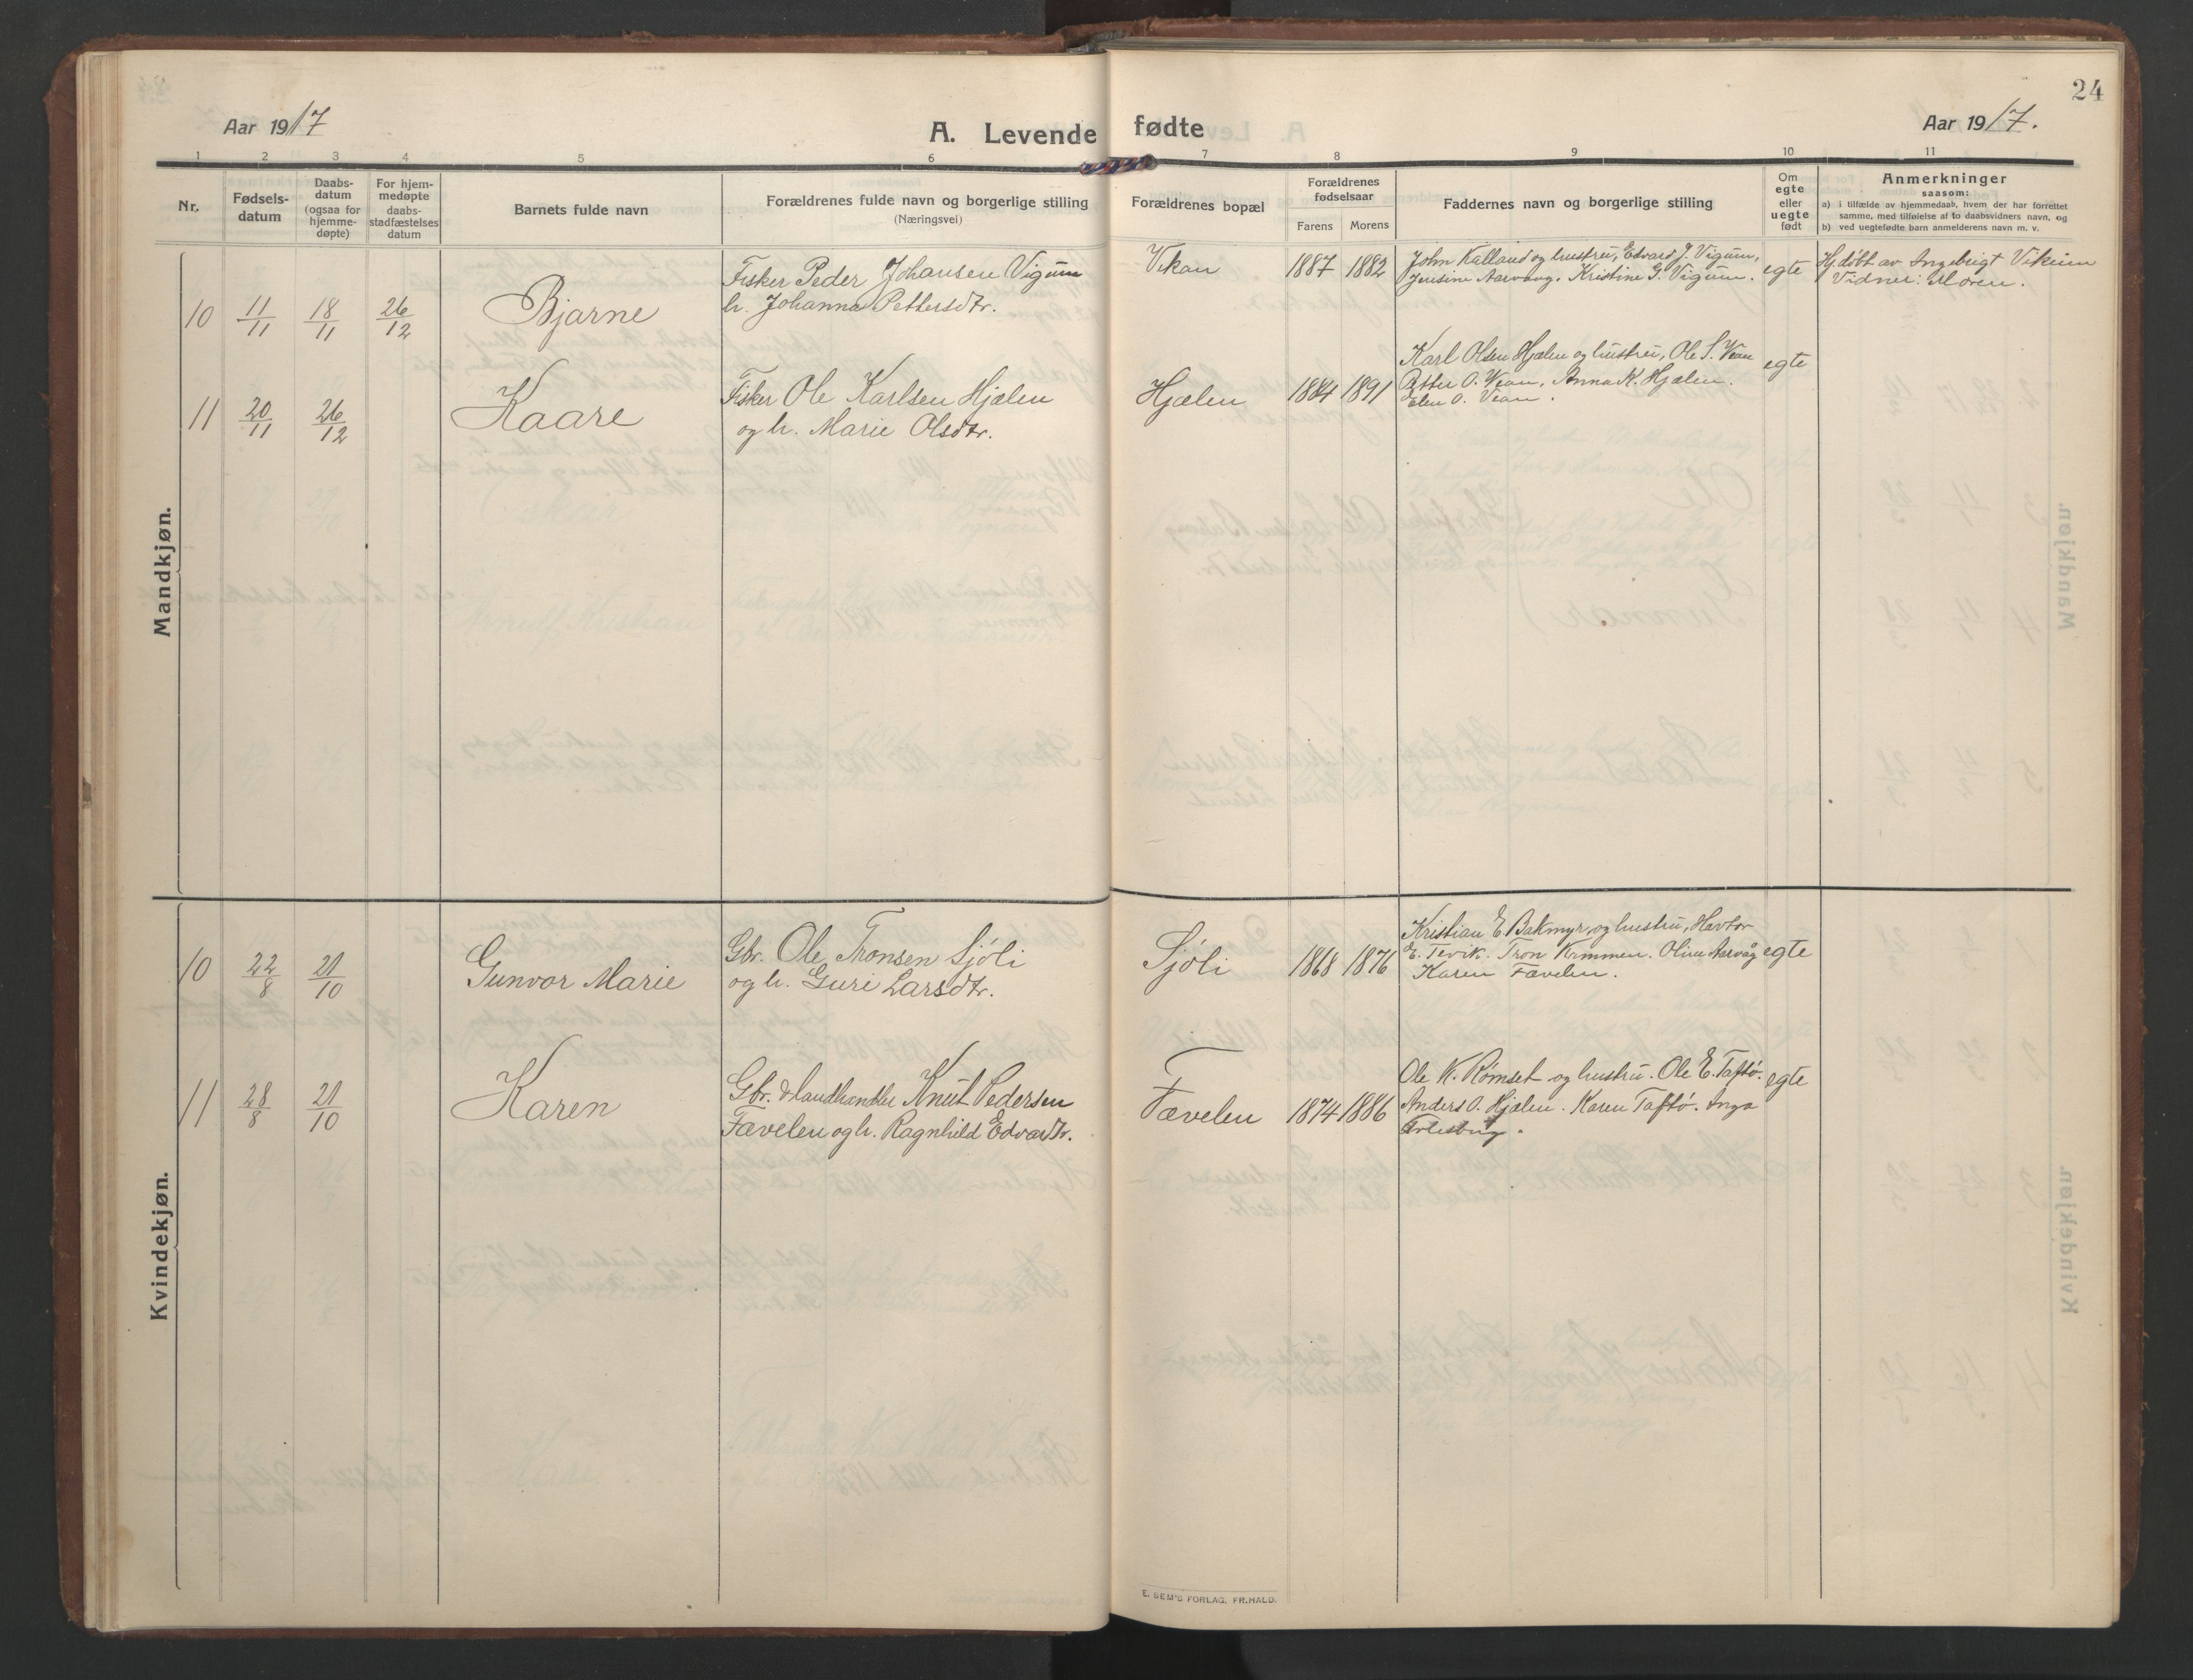 24
Aar 1917
A. Levende fødte
Aar 1917.
1 2 3 4 5 6 7 8 9 10 11
Nr.
Fødsels-
datum
Daabs-
datum
(ogsaa for
hjemme-
døpte)
For hjem-
medøpte
daabs-
stadfæstelses
datum
Barnets fulde navn
Forældrenes fulde navn og borgerlige stilling
(Næringsvei)
Forældrenes bopæl
Forældrenes
fødselsaar
Farens Morens
Faddernes navn og borgerlige stilling
Om
egte
eller
uegte
født
Anmerkninger
saasom:
a) i tilfælde av hjemmedaab, hvem der har forrettet
samme, med tilføielse af to daabsvidners navn, og
b) ved uegtefødte barn anmelderens navn m. v.
Mandkjøn.
10 11/11 18/11 26/12 Bjarne
Fisker Peder Johansen Vigum
h. Johanna Pettersdtr.
Vikan 1887 1882
John Kalland og hustru, Edvard J. Vigum,
Jensine Aarvaag. Kristine G. Vigum.
egte
Hj.døbt av Ingebrigt Vikum
Vidner: Moren.
11 20/11 26/12 Kaare
Fisker Ole Karlsen Hjælen
og h. Marie Olsdtr.
Hjælen 1884 1891
Karl Olsen Hjælen og hustru, Ole S. Vean
Petter O. Vean, Anna K. Hjælen.
Elen O. Vean.
egte
Kvindekjøn.
10 22/8 21/10 Gunvor Marie
Gbr. Ole Tronsen Sjöli
og h. Guri Larsdtr.
Sjöli 1868 1876
Kristian E. Bakmyr og hustru, Havtor
E. Tevik. Tron Kammen. Oline Aarvåg
Karen Fævelen.
egte
11 28/8 21/10 Karen
Gbr. & landhandler Knut Pedersen
Fævelen og h. Ragnhild Edvardtr.
Fævelen 1874 1886
Ole K. Rømset og hustru. Ole E. Taftø.
Anders O. Hjælen. Karen Taftø. Inga
egte
E. SEM'S FORLAG, FR.HALD.